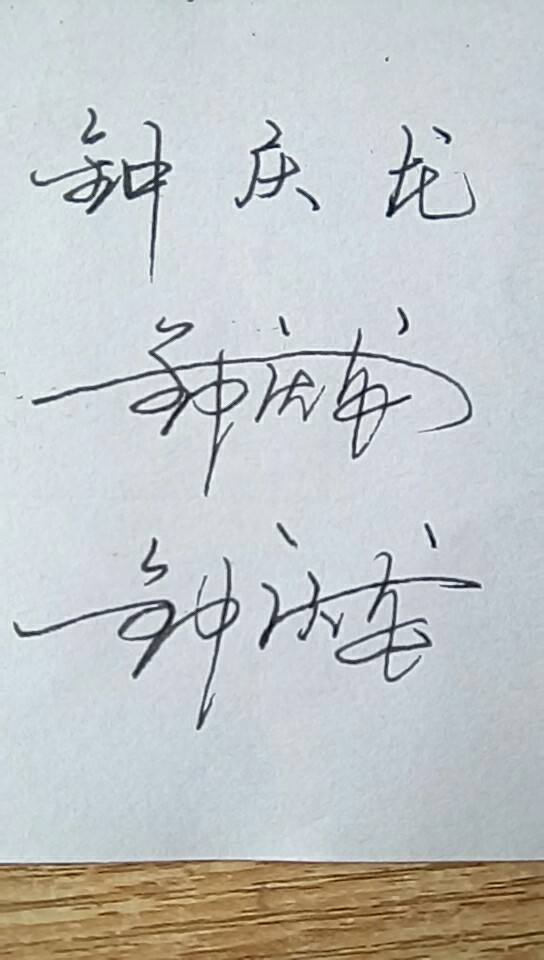 钟庆龙
钟庆龙
钟庆龙